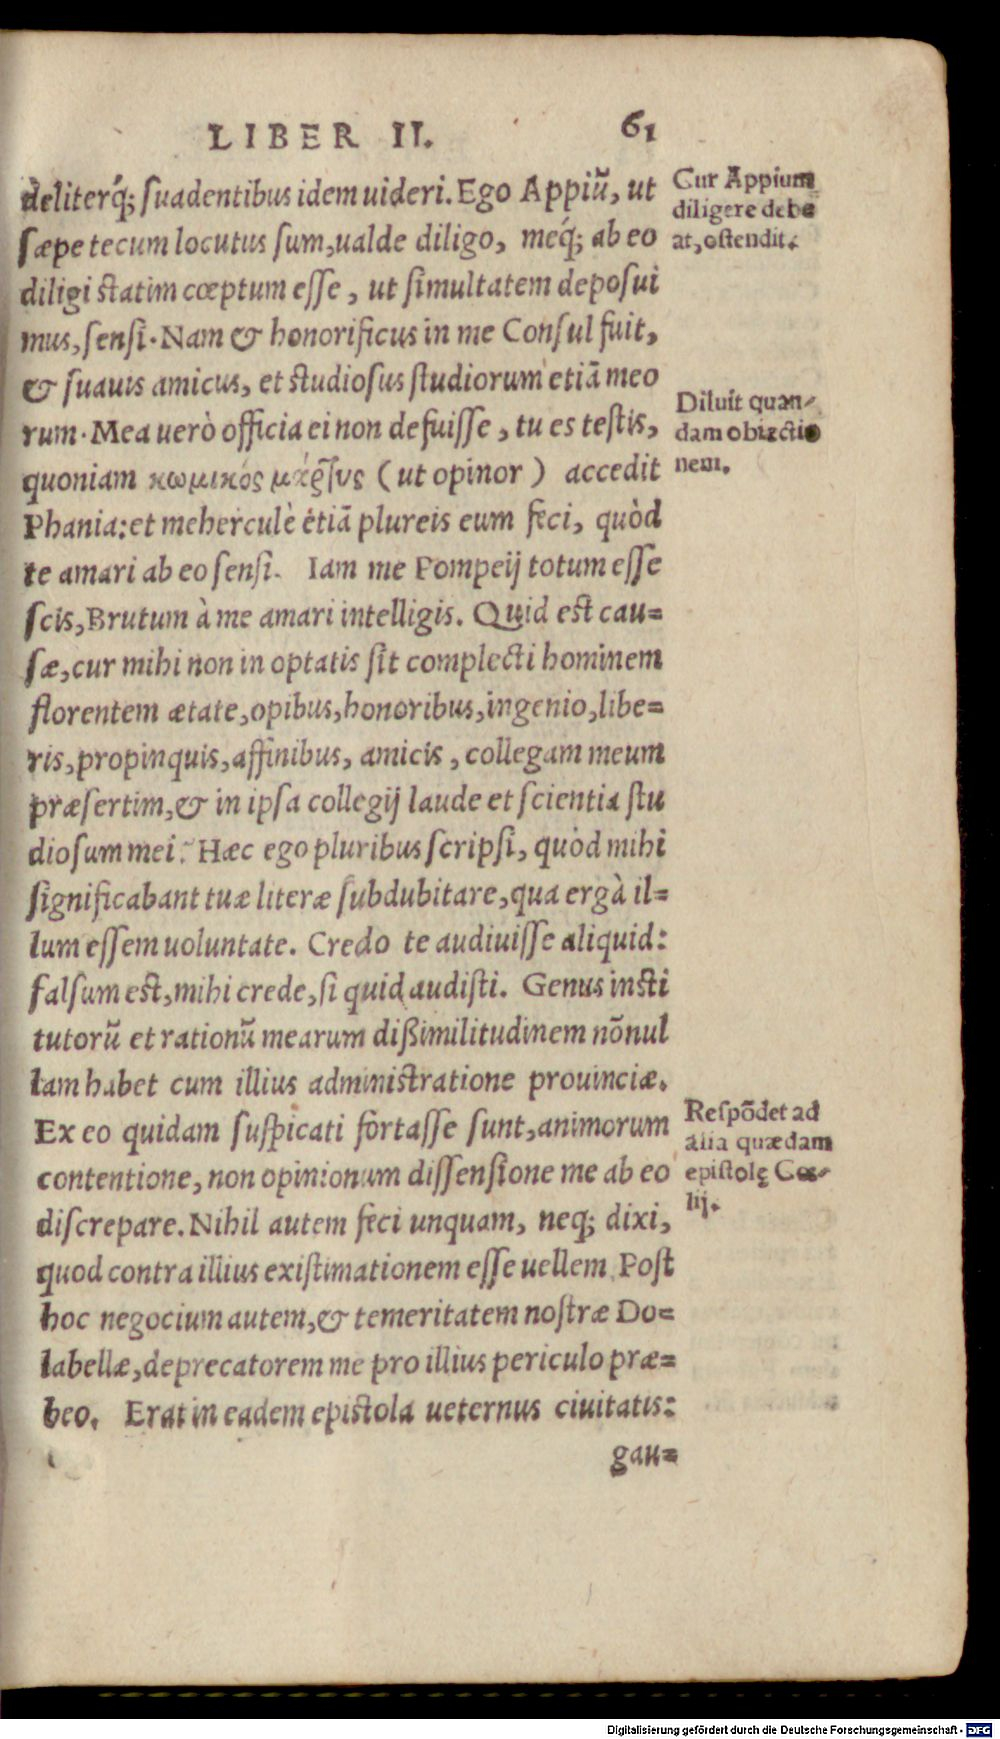 LIBER II. 61
deliterq́; ſuadentibus idem uideri. Ego Appiũ, ut
ſæpe tecum locutus ſum, ualde diligo, meq́; ab eo
diligi ſtatim cœptum eſſe, ut ſimultatem depoſui
mus, ſenſi. Nam & honorificus in me Conſul fuit,
& ſuauis amicus, et ſtudioſus ſtudiorum etiã meo
rum. Mea uerò officia ei non defuiſſe, tu es teſtis,
quoniam κωμικός μάρτυς (ut opinor) accedit
Phania: et meherculè etiã plureis eum feci, quòd
te amari ab eo ſenſi. Iam me Pompeij totum eſſe
ſcis, Brutum à me amari intelligis. Quid eſt cau=
ſæ, cur mihi non in optatis ſit complecti hominem
florentem ætate, opibus, honoribus, ingenio, libe=
ris, propinquis, affinibus, amicis, collegam meum
præſertim, & in ipſa collegij laude et ſcientia ſtu
dioſum mei? Hæc ego pluribus ſcripſi, quòd mihi
ſignificabant tuæ literæ ſubdubitare, qua ergà il=
lum eſſem uoluntate. Credo te audiuiſſe aliquid:
falſum eſt, mihi crede, ſi quid audiſti. Genus inſti
tutorũ et rationũ mearum dißimilitudinem nõnul
lam habet cum illius adminiſtratione prouinciæ.
Ex eo quidam ſuſpicati fortaſſe ſunt, animorum
contentione, non opinionum diſſenſione me ab eo
diſcrepare. Nihil autem feci unquam, neq; dixi,
quod contra illius exiſtimationem eſſe uellem. Poſt
hoc negocium autem, & temeritatem noſtræ Do=
labellæ, deprecatorem me pro illius periculo præ=
beo. Erat in eadem epiſtola ueternus ciuitatis:
gau=
Cur Appium
diligere debe
at, oſtendit.
Diluit quan-
dam obiectio
nem.
Reſpõdet ad
alia quædam
epiſtolę Cœ-
lij.
Digitalisierung gefördert durch die Deutsche Forschungsgemeinschaft - DFG